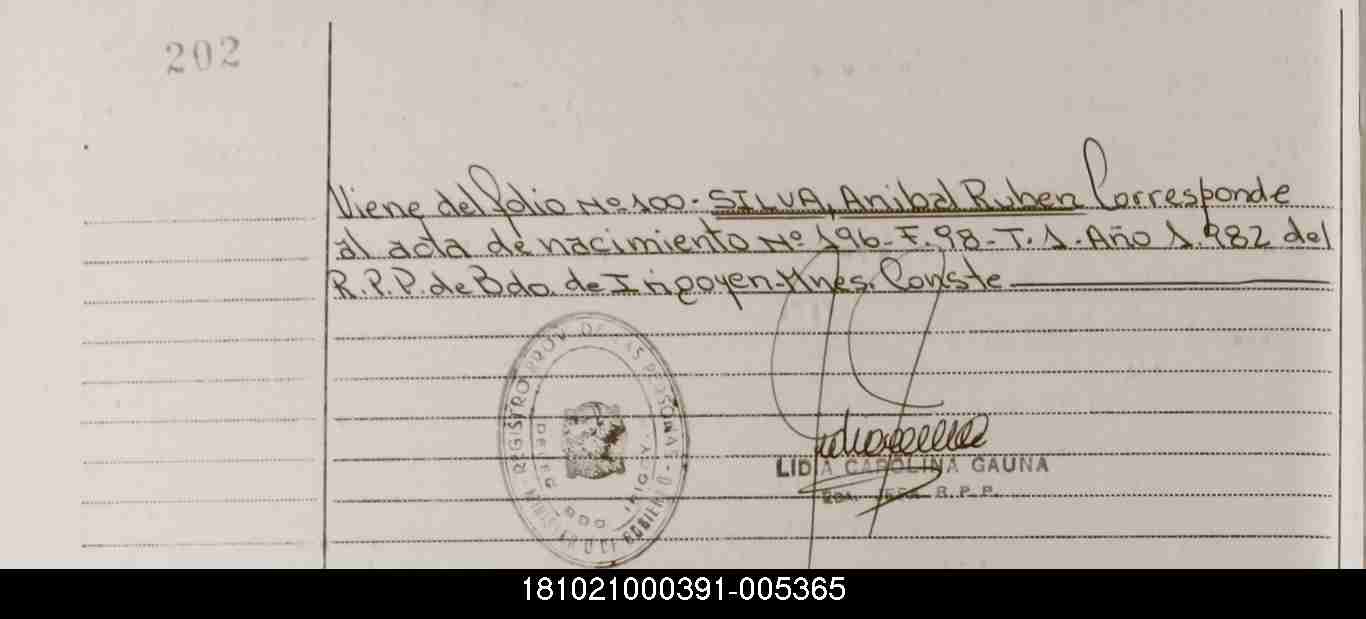 202
Viene del folio Nº 100. SILVA, Anibal Ruben Corresponde
al acta de nacimiento Nº 196- F. 98- T. 1. Año 1.982 del
R.P.P. de Bdo. de Irigoyen-Mnes. Conste
REGISTRO PROV. DE LAS PERSONAS - MINISTERIO DE GOBIERNO
DELEG. BDO. IRIGOYEN
LIDIA CAROLINA GAUNA
R.P.P.
181021000391-005365